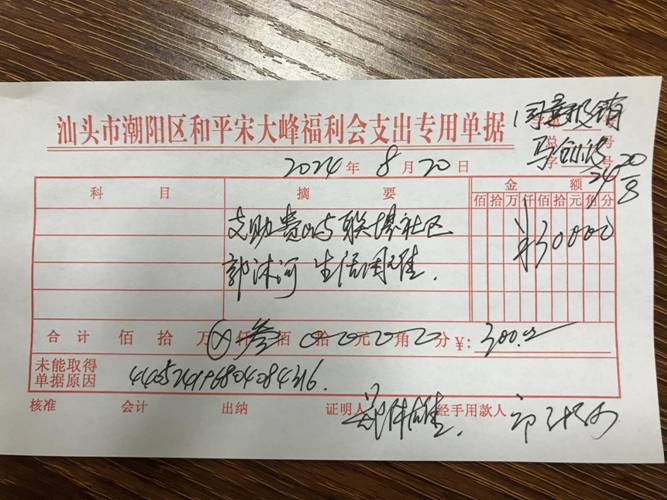 汕头市潮阳区和平宋大峰福利会支出专用单据
同意报销
总 号
字 号
24 20/8
2024 年 8 月 20 日
科 目 摘 要 金 额
佰 拾 万 仟 佰 拾 元 角 分
支助贵屿联堤社区 ¥30000
郭沐河 生活困难.
合 计 佰 拾 万 ⊗ 仟 叁 佰 0 拾 0 元 0 角 0 分 ¥: 300.00
未能取得
单据原因
核准 会计 出纳 证明人 经手用款人